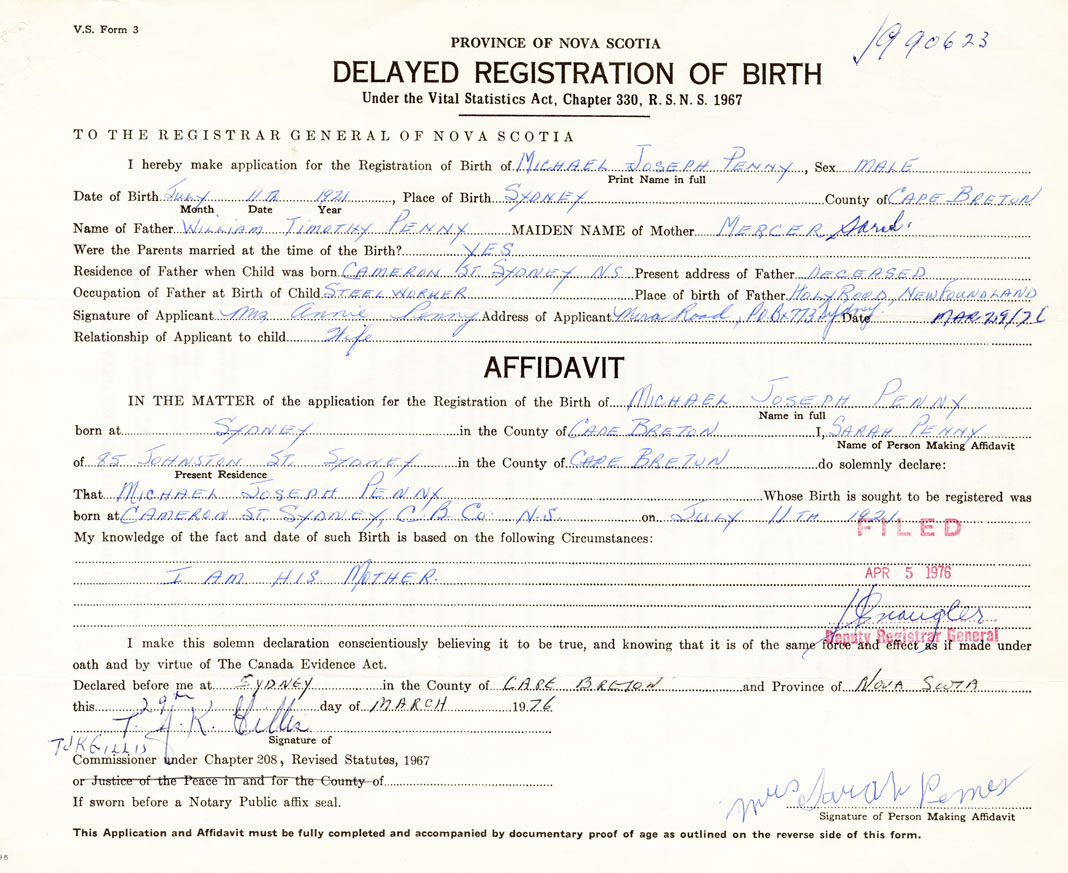 V.S. Form 3
1990623
PROVINCE OF NOVA SCOTIA
DELAYED REGISTRATION OF BIRTH
Under the Vital Statistics Act, Chapter 330, R.S.N.S. 1967
TO THE REGISTRAR GENERAL OF NOVA SCOTIA
I hereby make application for the Registration of Birth of MICHAEL JOSEPH PENNY, Sex MALE
Print Name in full
Date of Birth JULY 11TH 1921, Place of Birth SYDNEY County of CAPE BRETON
Month Date Year
Name of Father WILLIAM TIMOTHY PENNY MAIDEN NAME of Mother MERCER
Were the Parents married at the time of the Birth? YES
Residence of Father when Child was born CAMERON ST. SYDNEY NS Present address of Father DECEASED
Occupation of Father at Birth of Child STEELWORKER Place of birth of Father HOLYROOD, NEWFOUNDLAND
Signature of Applicant Mrs Annie Penny Address of Applicant Mira Road, PO Bx 773 Sydney Date MAR 29/76
Relationship of Applicant to child Wife
AFFIDAVIT
IN THE MATTER of the application for the Registration of the Birth of MICHAEL JOSEPH PENNY
Name in full
born at SYDNEY in the County of CAPE BRETON I, SARAH PENNY
Name of Person Making Affidavit
of 85 JOHNSTON ST. SYDNEY in the County of CAPE BRETON do solemnly declare:
Present Residence
That MICHAEL JOSEPH PENNY Whose Birth is sought to be registered was
born at CAMERON ST. SYDNEY, C.B. CO. N.S. on JULY 11TH 1921
FILED
My knowledge of the fact and date of such Birth is based on the following Circumstances:
I AM HIS MOTHER.
APR 5 1976
Deputy Registrar General
I make this solemn declaration conscientiously believing it to be true, and knowing that it is of the same force and effect as if made under
oath and by virtue of The Canada Evidence Act.
Declared before me at SYDNEY in the County of CAPE BRETON and Province of NOVA SCOTA
this 29th day of MARCH 1976
T. J. K. Gillis
Signature of
TJK GILLIS
Commissioner under Chapter 208, Revised Statutes, 1967
or Justice of the Peace in and for the County of
If sworn before a Notary Public affix seal.
Mrs Sarah Penney
Signature of Person Making Affidavit
This Application and Affidavit must be fully completed and accompanied by documentary proof of age as outlined on the reverse side of this form.